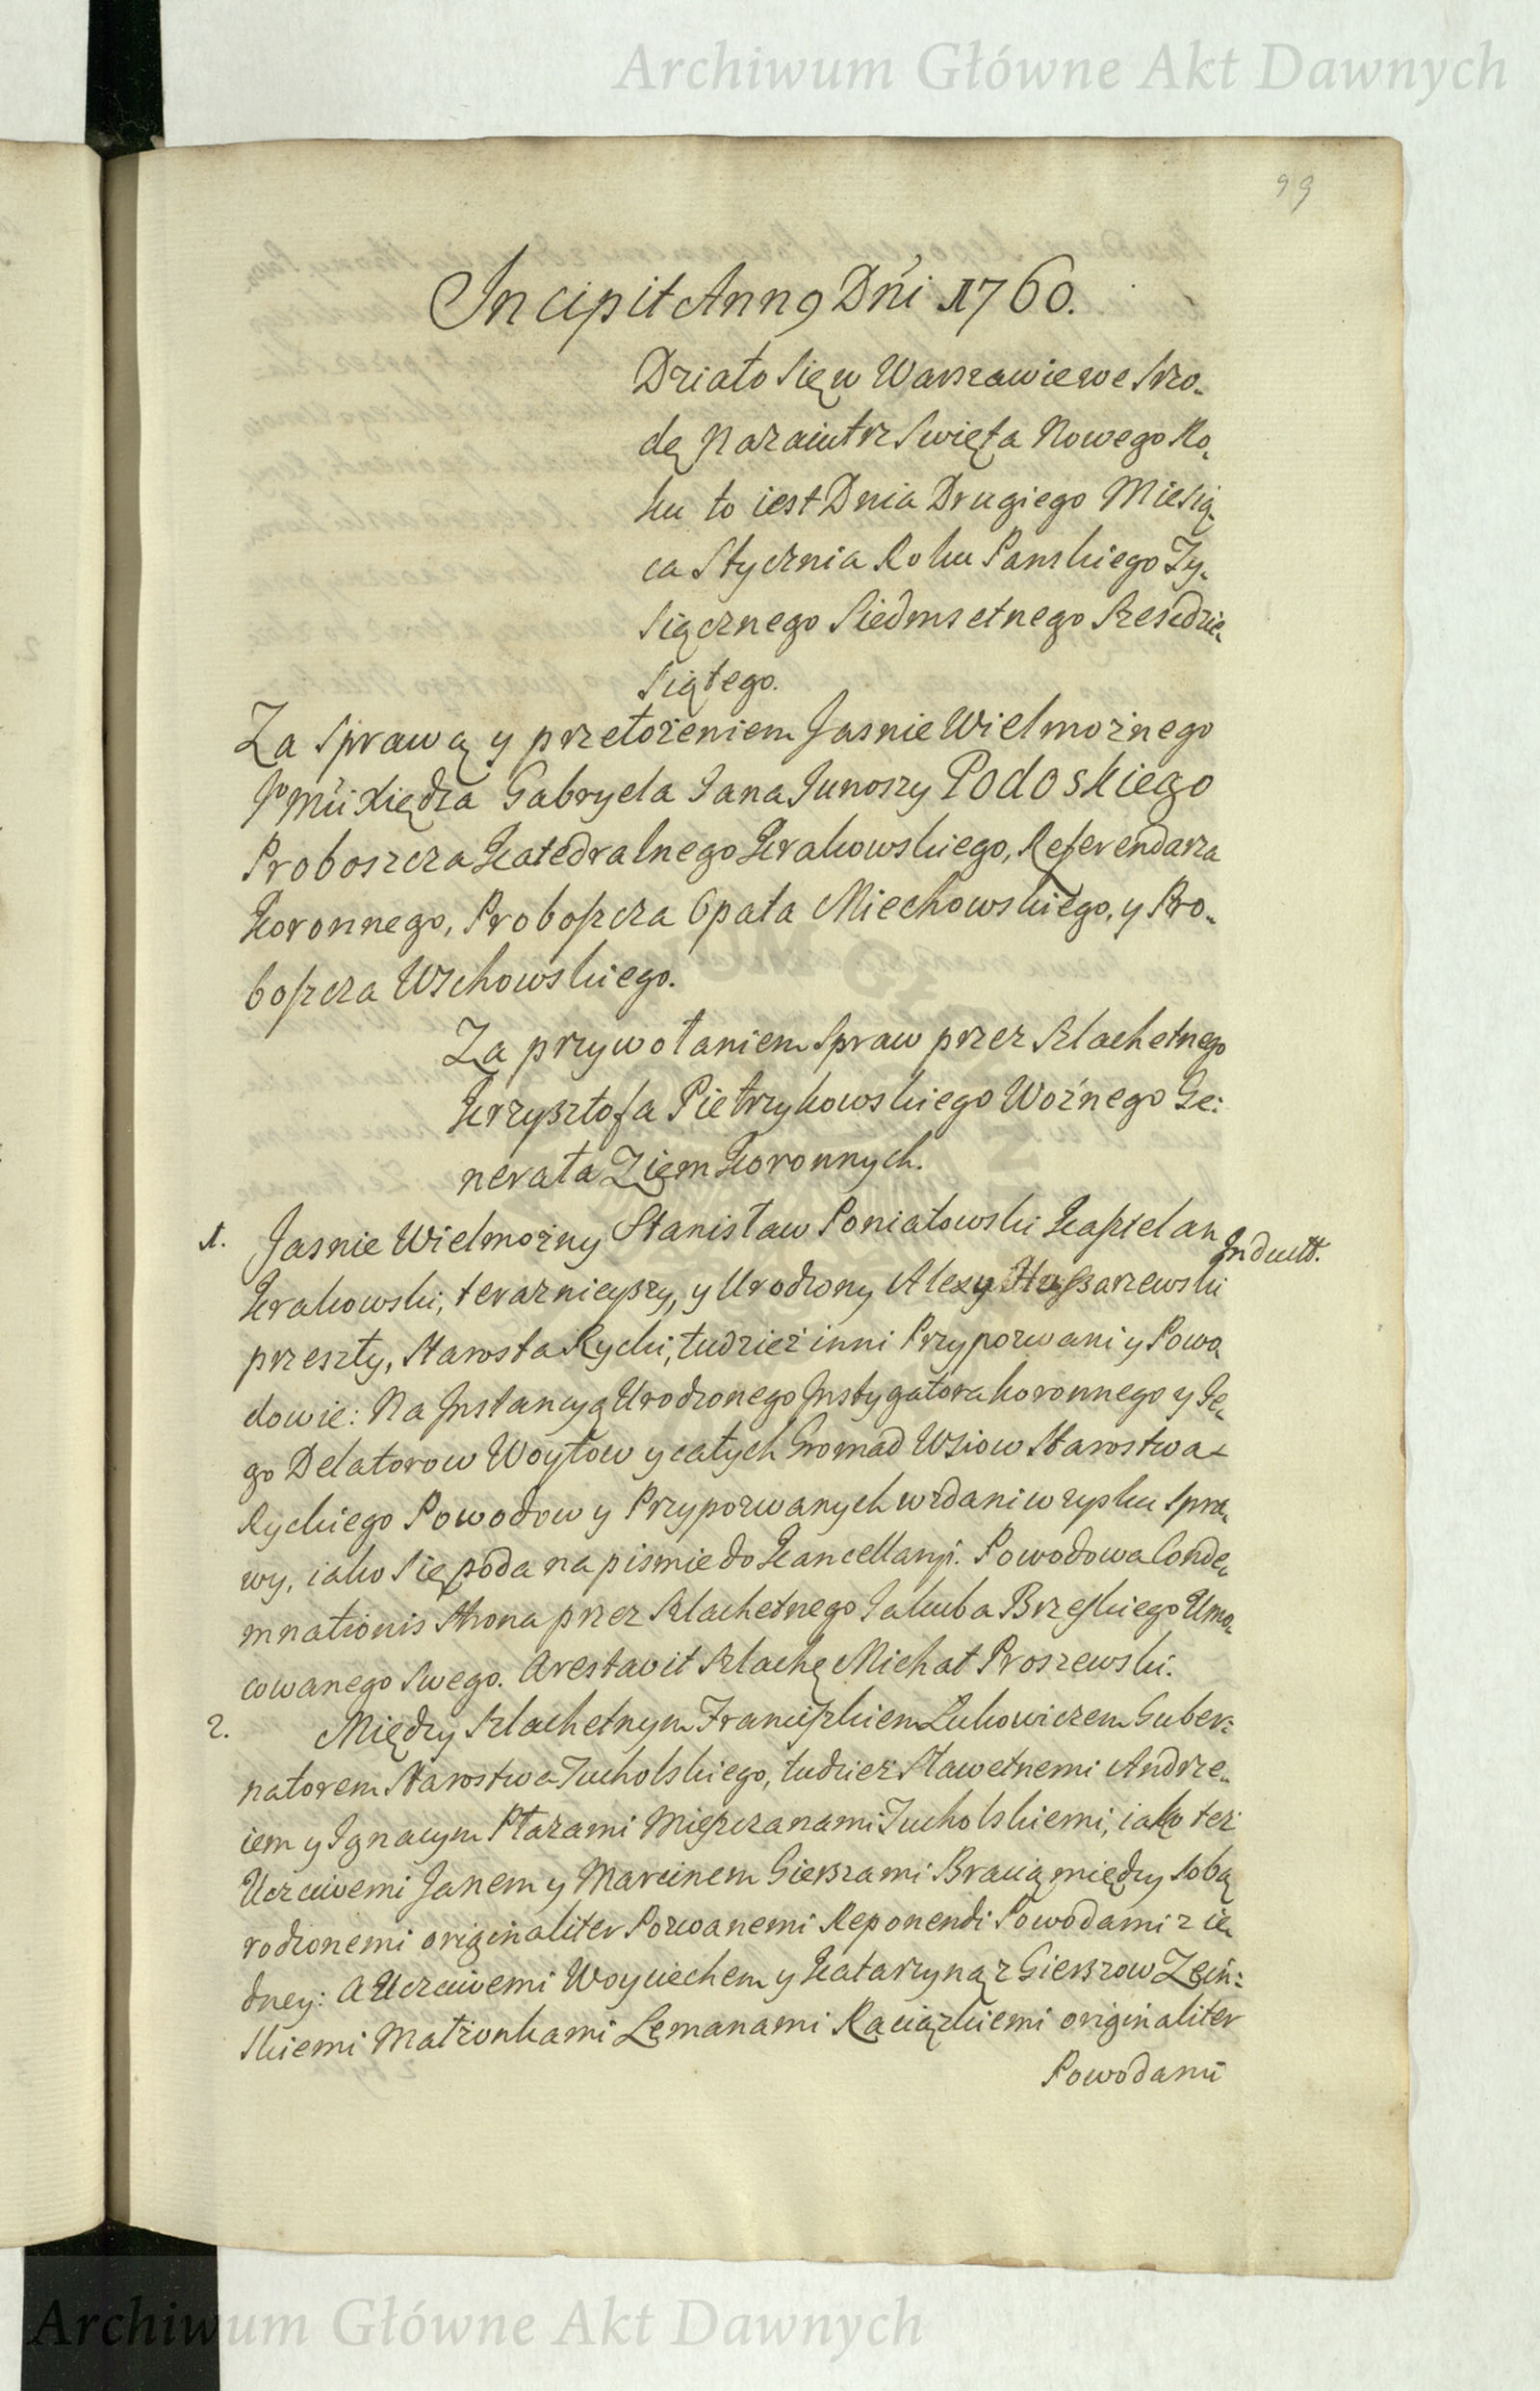 Archiwum Główne Akt Dawnych
99
Incipit Annꝯ Dńi 1760.
Działo się w Warszawie we Szro-
dę nazaiutrz Swięta Nowego Ro-
ku to iest Dnia Drugiego Miesią-
ca Stycznia Roku Panskiego Ty-
siącznego Siedmsetnego Szescdzie-
siątego.
Za sprawą y przełożeniem Jasnie Wielmożnego
Jº Mći Xiędza Gabryela Jana Junoszy Podoskiego
Proboszcza Katedralnego Krakowskiego, Referendarza
Koronnego, Proboszcza Opata Miechowskiego, y Pro-
boszcza Wschowskiego.
Za przywołaniem spraw przez Szlachetnego
Krzysztofa Pietrzykowskiego Woźnego Ge:
nerała Ziem Koronnych.
1. Jasnie Wielmożny Stanisław Poniatowski Kasztelan Indult.
Krakowski, teraznieyszy, y Urodzony Alexy Hussarzewski
przeszły, Starosta Rycki, tudzież inni Przypozwani y Powo-
dowie: Na Instancyą Urodzonego Instygatora koronnego y Je-
go Delatorow Woytow y całych Gromad Wsiow Starostwa
Ryckiego Powodow y Przypozwanych w zdaniw zysku spra-
wy, iako się poda na pismie do Kancellaryi. Powodowa Conde-
mnationis strona przez Szlachetnego Jakuba Brzeskiego Umo-
cowanego swego. Arestavit Szlachę Michał Proszewski.
2. Między Szlachetnym Franciszkiem Lukowiczem Guber:
natorem Starostwa Tucholskiego, tudzież Sławetnemi Andrze-
iem y Ignacym Ptazami Mieszczanami Tucholskiemi, iako też
Uczciwemi Janem y Marcinem Gierszami Bracią między sobą
rodzonemi originaliter Pozwanemi Reponendi Powodami z ie-
dney: A Uczciwemi Woyciechem y Katarzyną z Gierszow Zęiń:
skiemi Małżonkami Lemanami Raciązkiemi originaliter
Powodami
Archiwum Główne Akt Dawnych